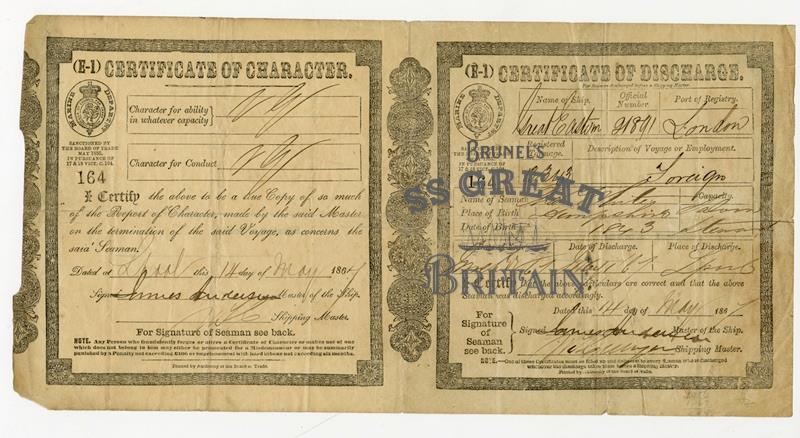 (E-1) CERTIFICATE OF CHARACTER.
MARINE DEPARTMENT
SANCTIONED BY
THE BOARD OF TRADE
MAY 1855,
IN PURSUANCE OF
17 & 18 VICT. C. 104.
164
Character for ability
in whatever capacity
VG
Character for Conduct
VG
I Certify the above to be a true Copy of so much
of the Report of Character, made by the said Master
on the termination of the said Voyage, as concerns the
said Seaman.
Dated at Lpool this 14 day of May 1867
Signed James Anderson Master of the Ship.
Shipping Master.
For Signature of Seaman see back.
NOTE. Any Person who fraudulently forges or alters a Certificate of Character or makes use of one
which does not belong to him may either be prosecuted for a Misdemeanour or may be summarily
punished by a Penalty not exceeding £100 or imprisonment with hard labour not exceeding six months.
Printed by Authority of the Board of Trade.
(E-1) CERTIFICATE OF DISCHARGE.
For Seamen discharged before a Shipping Master.
MARINE DEPARTMENT
SANCTIONED BY
THE BOARD OF TRADE
MAY 1855
IN PURSUANCE OF
17 & 18 VICT. C. 104.
164
Name of Ship.
Official
Number.
Port of Registry.
Great Eastern
London
Registered
Tonnage.
Description of Voyage or Employment.
Foreign
Name of Seaman
Place of Birth
Date of Birth
1843
Capacity.
Date of Discharge.
Place of Discharge.
Lpool
I Certify that the above particulars are correct and that the above
Seaman was discharged accordingly.
Dated this 14 day of May 1867
Signed James Anderson Master of the Ship.
Shipping Master.
For
Signature
of
Seaman
see back.
NOTE.—One of these Certificates must be filled up and delivered to every Seaman who is discharged
whenever the discharge takes place before a Shipping Master.
Printed by Authority of the Board of Trade.
BRUNEL'S
SS GREAT
BRITAIN